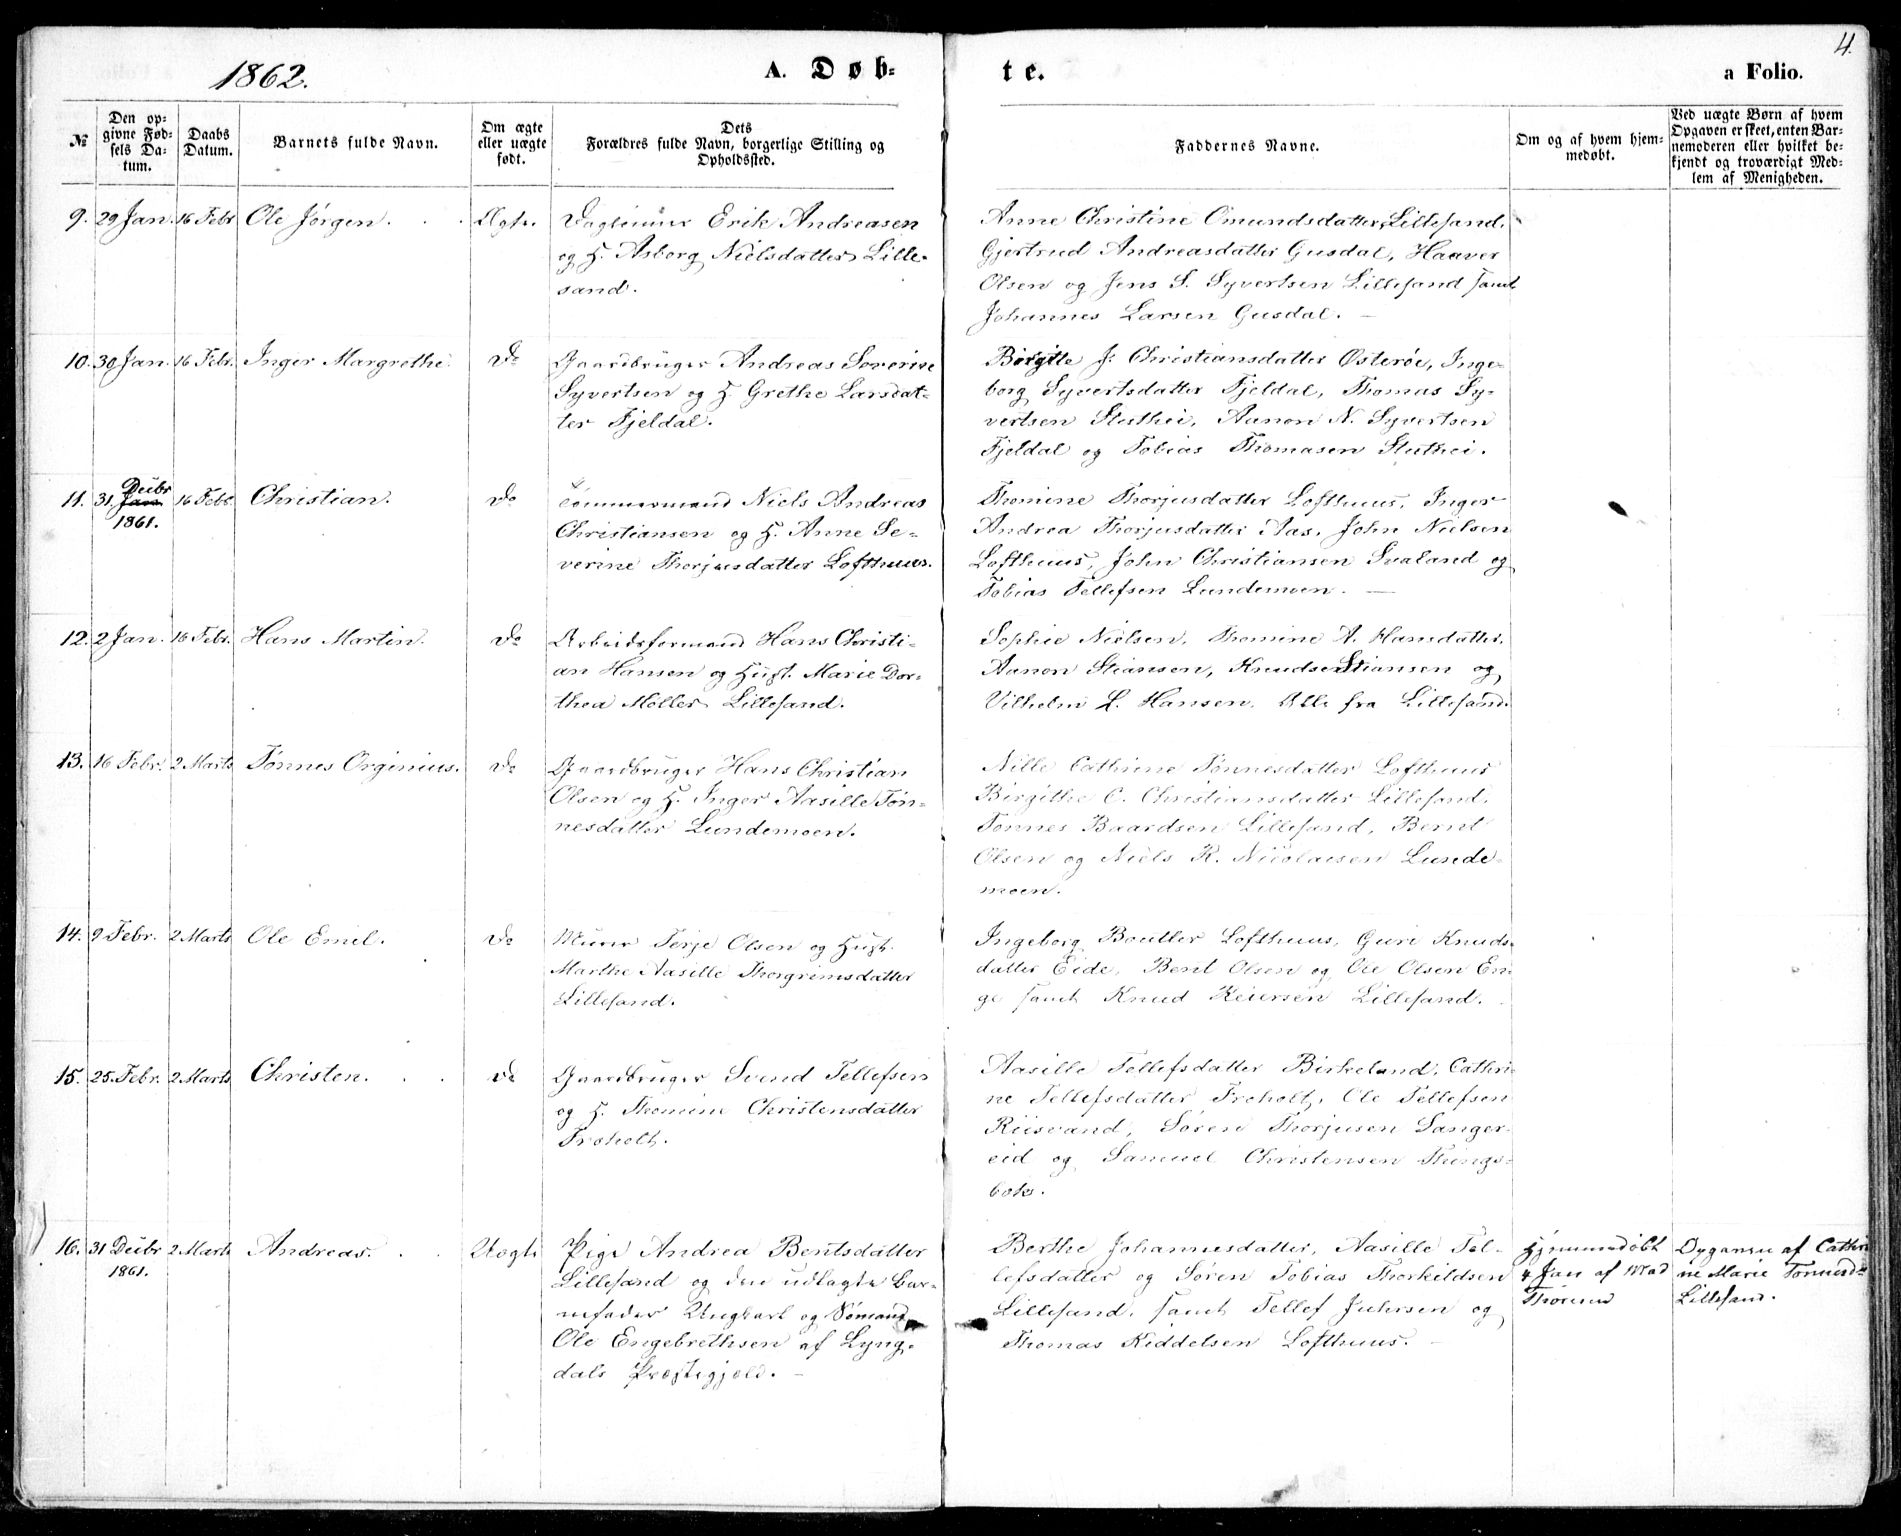 1862.
A. Døb-
te.
a Folio.
4.
№
Den op-
givne Fød-
sels Da-
tum.
Daabs
Datum.
Barnets fulde Navn.
Om ægte
eller uægte
født.
Dets
Forældres fulde Navn, borgerlige Stilling og
Opholdssted.
Faddernes Navne.
Om og af hvem hjem-
medøbt.
Ved uægte Børn af hvem
Opgaven er skeet, enten Bar-
nemoderen eller hvilket be-
kjendt og troværdigt Med-
lem af Menigheden.
9. 29 Jan. 16 Febr Ole Jørgen. Ægte. Daglønner Erik Andreasen
og H. Asborg Nielsdatter Lille-
sand.
Anne Christine Omundsdatter Lillesand,
Gjertrud Andreasdatter Gusdal, Haaver
Olsen og Jens S. Syvertsen Lillesand samt
Johannes Larsen Gusdal. —
10. 30 Jan. 16 Febr. Inger Margrethe. Do Gaardbruger Andreas Severine
Syvertsen og H. Grethe Larsdat-
ter Fjeldal.
Birgitte J. Christiansdatter Østerøe, Inge-
borg Syvertsdatter Fjeldal, Thomas Sy-
vertsen Sluthei, Aanon N. Syvertsen
Fjeldal og Tobias Thomasen Sluthei.
11. 31 Jan. Decbr 1861. 16 Febr. Christian. Do Tømmermand Niels Andreas
Christiansen og H. Anne Se-
verine Thorjusdatter Lofthuus.
Thomine Thorjusdatter Lofthuus, Inger
Andrea Thorjusdatter Aas, John Nielsen
Lofthuus, John Christiansen Svaland og
Tobias Tellefsen Lundemoen. —
12. 2 Jan. 16 Febr. Hans Martin. Do Arbeidsformand Hans Christi-
an Hansen og Hust. Marie Dor-
thea Møller Lillesand.
Sophie Nielsen, Thomine A. Hansdatter,
Aanon Stiansen, Knudsen Stiansen og
Vilhelm L. Hansen, Alle fra Lillesand.
13. 16 Febr. 2 Marts Tønnes Orginius. Do Gaardbruger Hans Christian
Olsen og H. Inger Aasille Tøn-
nesdatter Lundemoen.
Nille Cathrine Tønnesdatter Lofthuus
Birgithe C. Christiansdatter Lillesand,
Tønnes Baardsen Lillesand, Bernt
Olsen og Niels R. Nicolaisen Lunde-
moen.
14. 9 Febr. 2 Marts Ole Emil. Do Murer Terje Olsen og Hust.
Marthe Aasille Thorgrimsdatter
Lillesand.
Ingeborg Boutler Lofthuus, Guri Knuds-
datter Eide, Bent Olsen og Ole Olsen En-
ge samt Knud Reiersen Lillesand.
15. 25. Febr. 2 Marts Christen. Do Gaardbruger Svend Tellefsen
og H. Thomine Christensdatter
Froholt.
Aasille Tellefsdatter Birkeland, Cathri-
ne Tellefsdatter Froholt, Ole Tellefsen
Riisvand, Søren Thorjusen Sanger-
eid og Samuel Christensen Things-
bok.
16. 31 Decbr 1861. 2 Marts Andreas. Uægte Pige Andrea Bentsdatter
Lillesand og den udlagte Bar-
nefader Ungkarl og Sømand
Ole Engebrethsen af Lyng-
dals Præstegjeld. —
Berthe Johannesdatter, Aasille Tel-
lefsdatter og Søren Tobias Thorkildsen
Lillesand, samt Tellef Juhrsen og
Thomas Kiddelsen Lofthuus. —
Hjemmedøbt
4 Jan af Mad
Thorsen
Opgaven af Cathri-
ne Marie Tønnesd-
Lillesand.